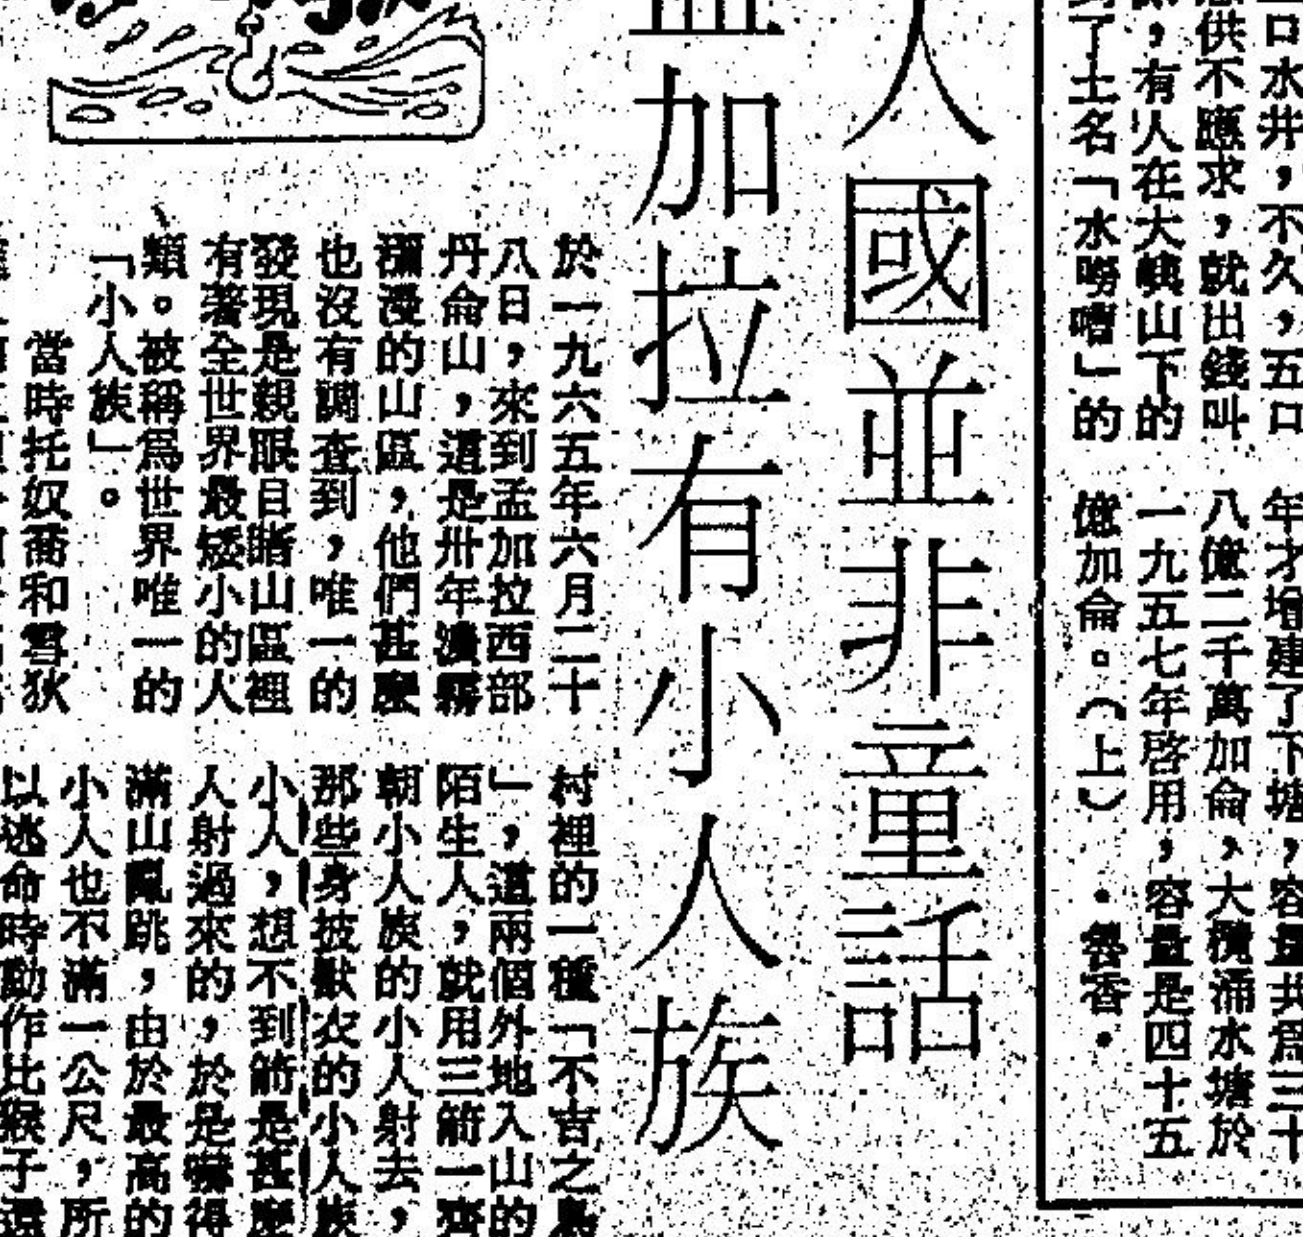 口水井，不久，五口
供不應求，就出錢叫
，有人在大峽山下的
了土名「水嘮嘈」的
年才增建了下塘，容量共爲三十
八億二千萬加侖，大欖涌水塘於
一九五七年啓用，容量是四十五
億加侖。（上）
人國並非童話
孟加拉有小人族
於一九六五年六月二十
八日，來到孟加拉西部
丹侖山，這是卅年濃霧
瀰漫的山區，他們甚麼
也沒有調查到，唯一的
發現是親眼目睹山區裡
有著全世界最矮小的人
類。被稱爲世界唯一的
「小人族」。
當時托奴喬和雪狄
村裡的一種「不吉之
」，這兩個外地入山的
陌生人，就用三箭一齊
朝小人族的小人射去，
那些身披獸衣的小人族
小人，想不到箭是甚麼
人射過來的，於是嚇得
滿山亂跳，由於最高的
小人也不滿一公尺，所
以逃命時動作比猴子還